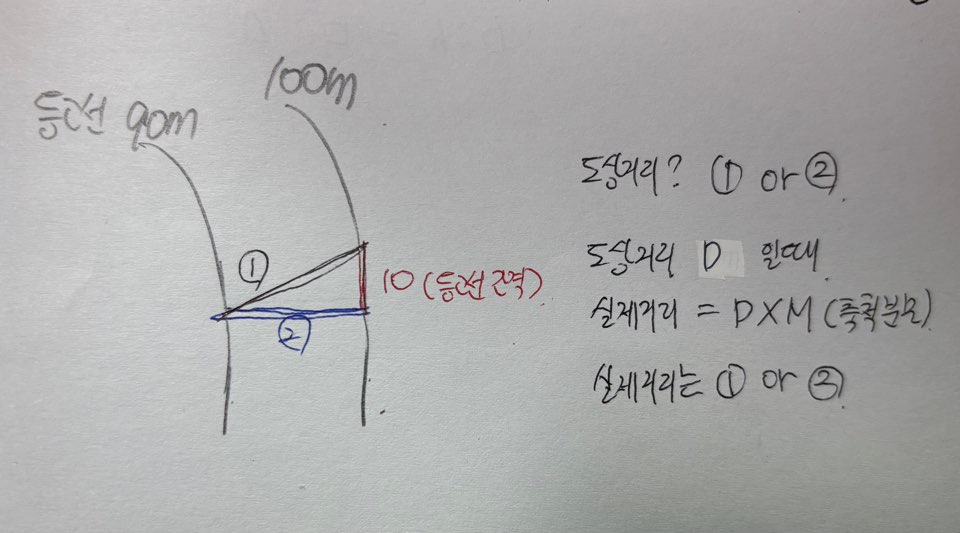 등고선 90m
100m
①
10 (등고선 간격)
②
도상거리? ① or ②.
도상거리 D 일때
실제거리 = D X M (축척분모)
실제거리는 ① or ②.